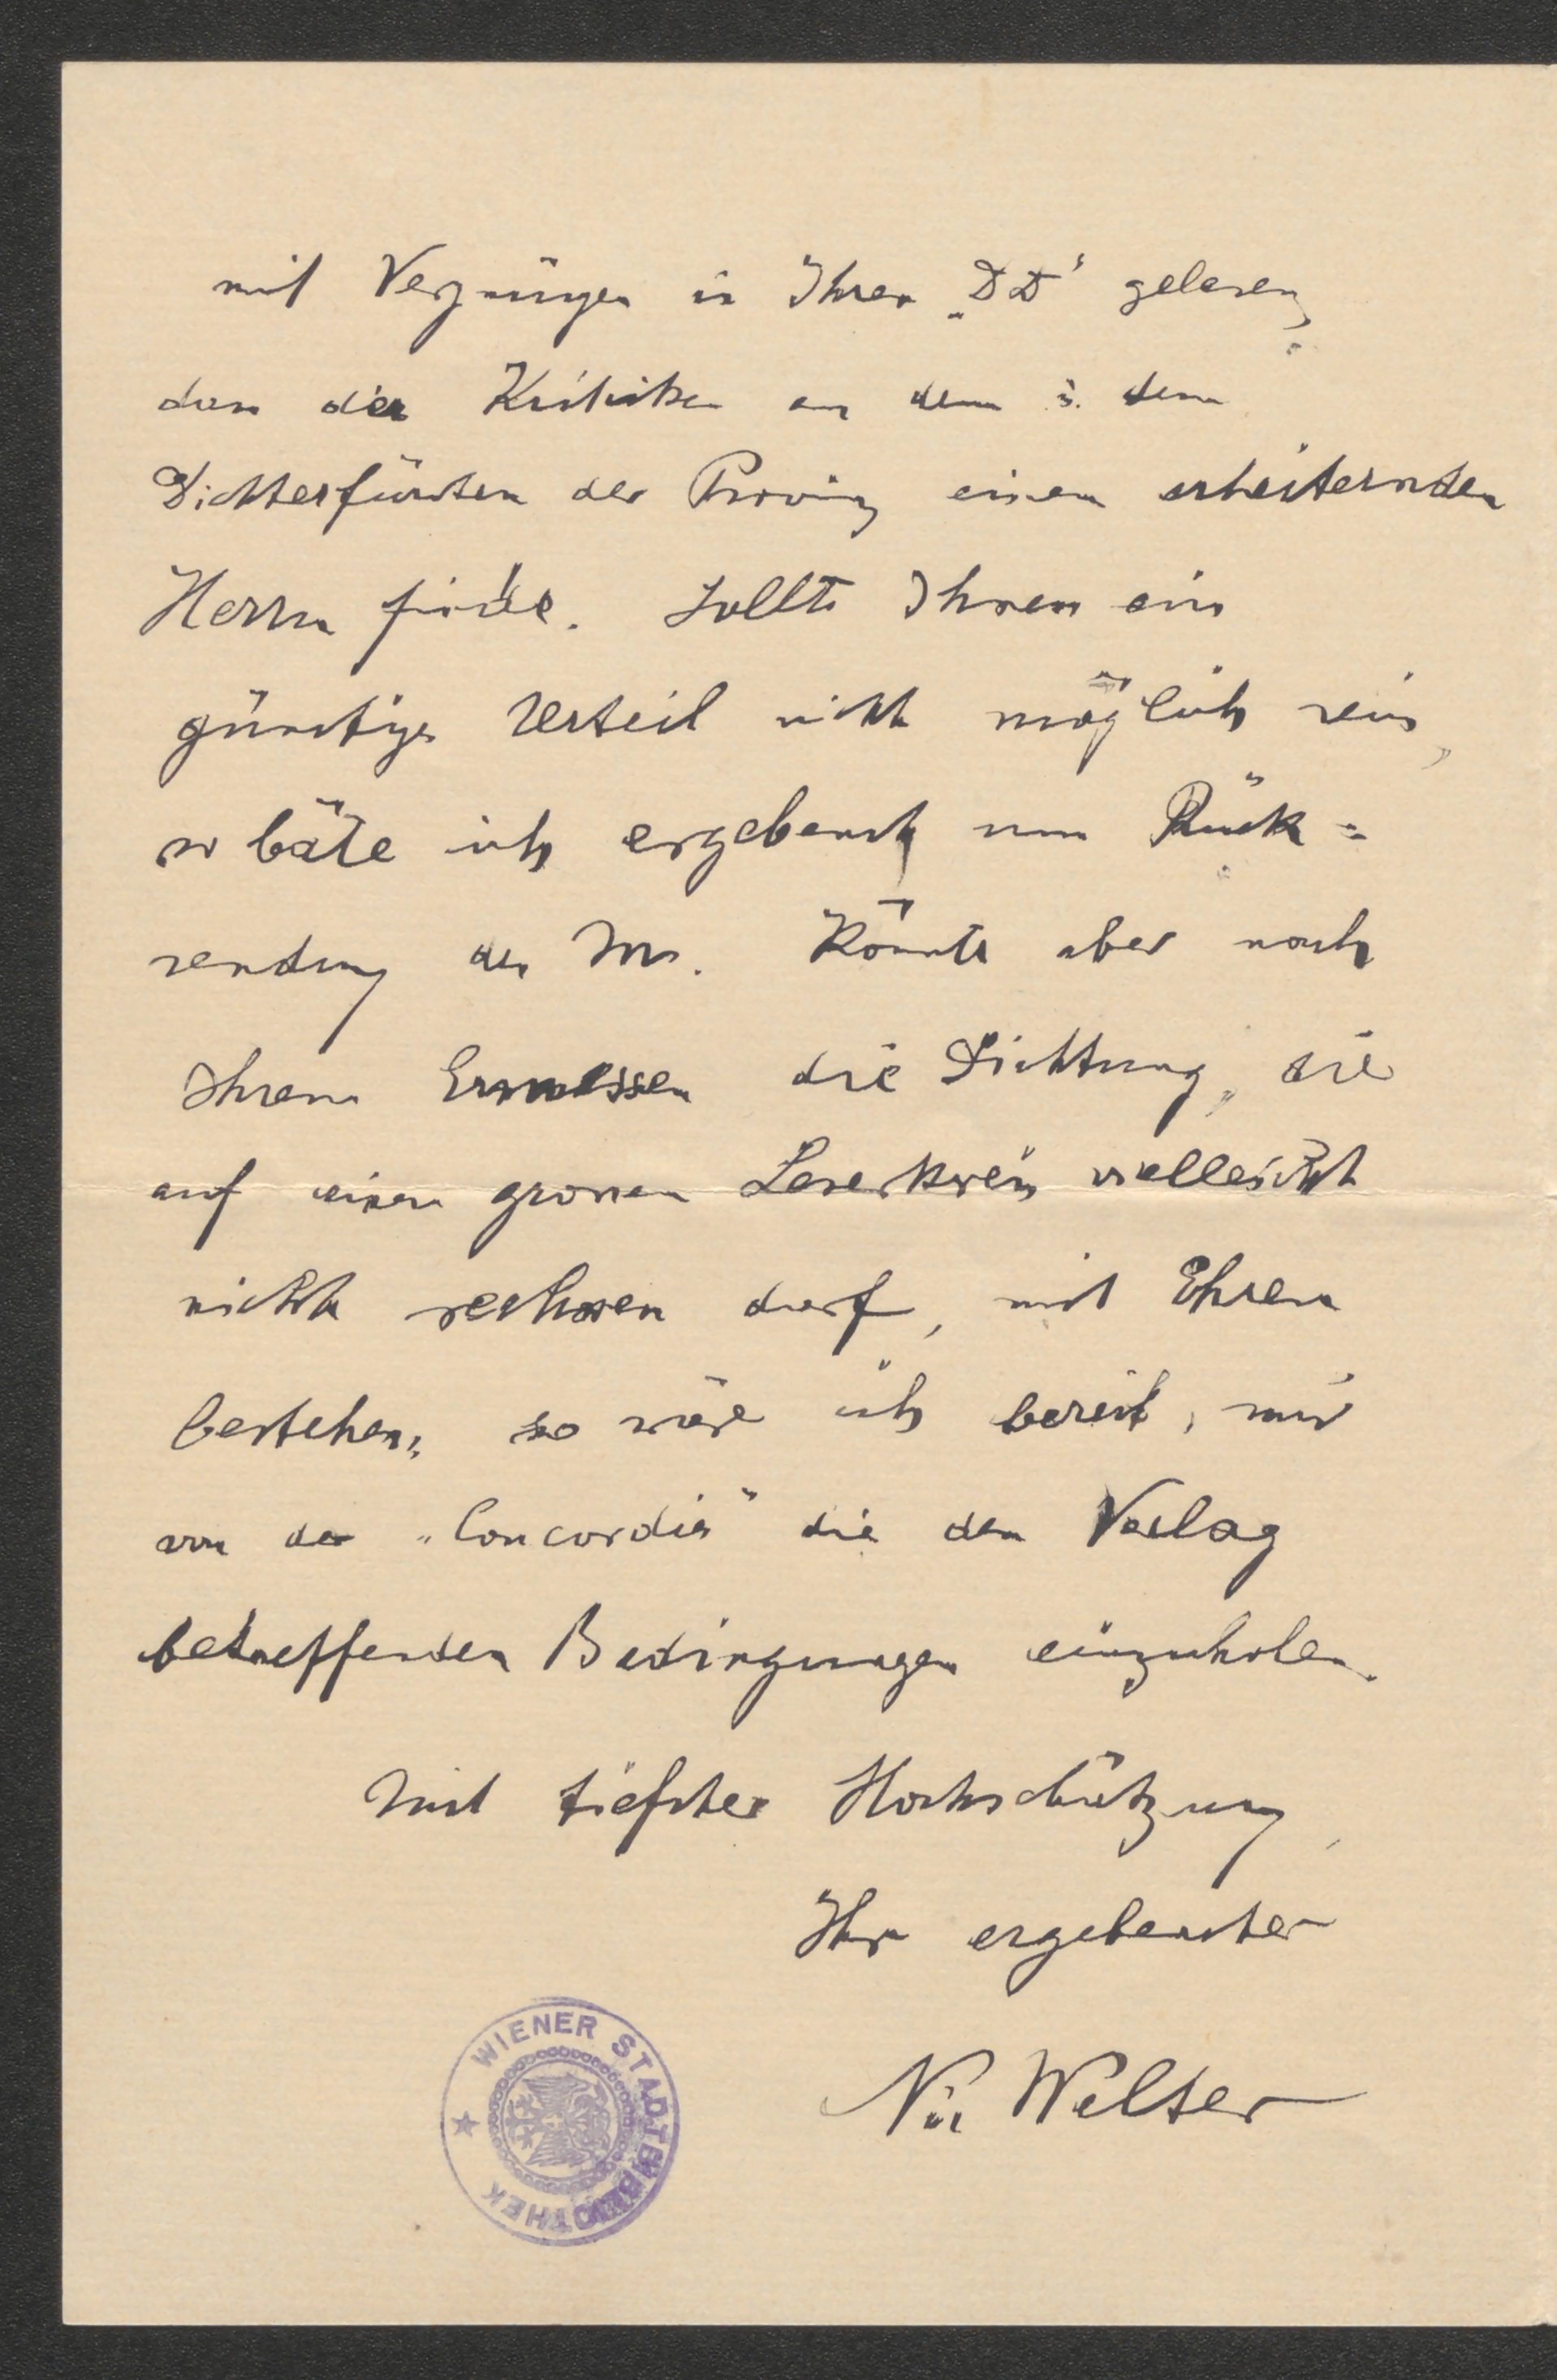 mit Vergnügen in Ihrer „DD" gelesen,
dass der Kritiker an dem u. dem
Dichterfürsten der Provinz einen erheiternden
Herrn finde. Sollte Ihnen ein
günstiges Urteil nicht möglich sein,
so bäte ich ergebenst um Rück=
sendung des Ms. Könnte aber nach
Ihrem Ermessen die Dichtung, die
auf einen grossen Leserkreis vielleicht
nicht rechnen darf, mit Ehren
bestehen, so wäre ich bereit, mir
von der „Concordia" die den Verlag
betreffenden Bedingungen einzuholen.
Mit tiefster Hochschätzung,
Ihr ergebenster
Nik Welter
WIENER STADTBIBLIOTHEK